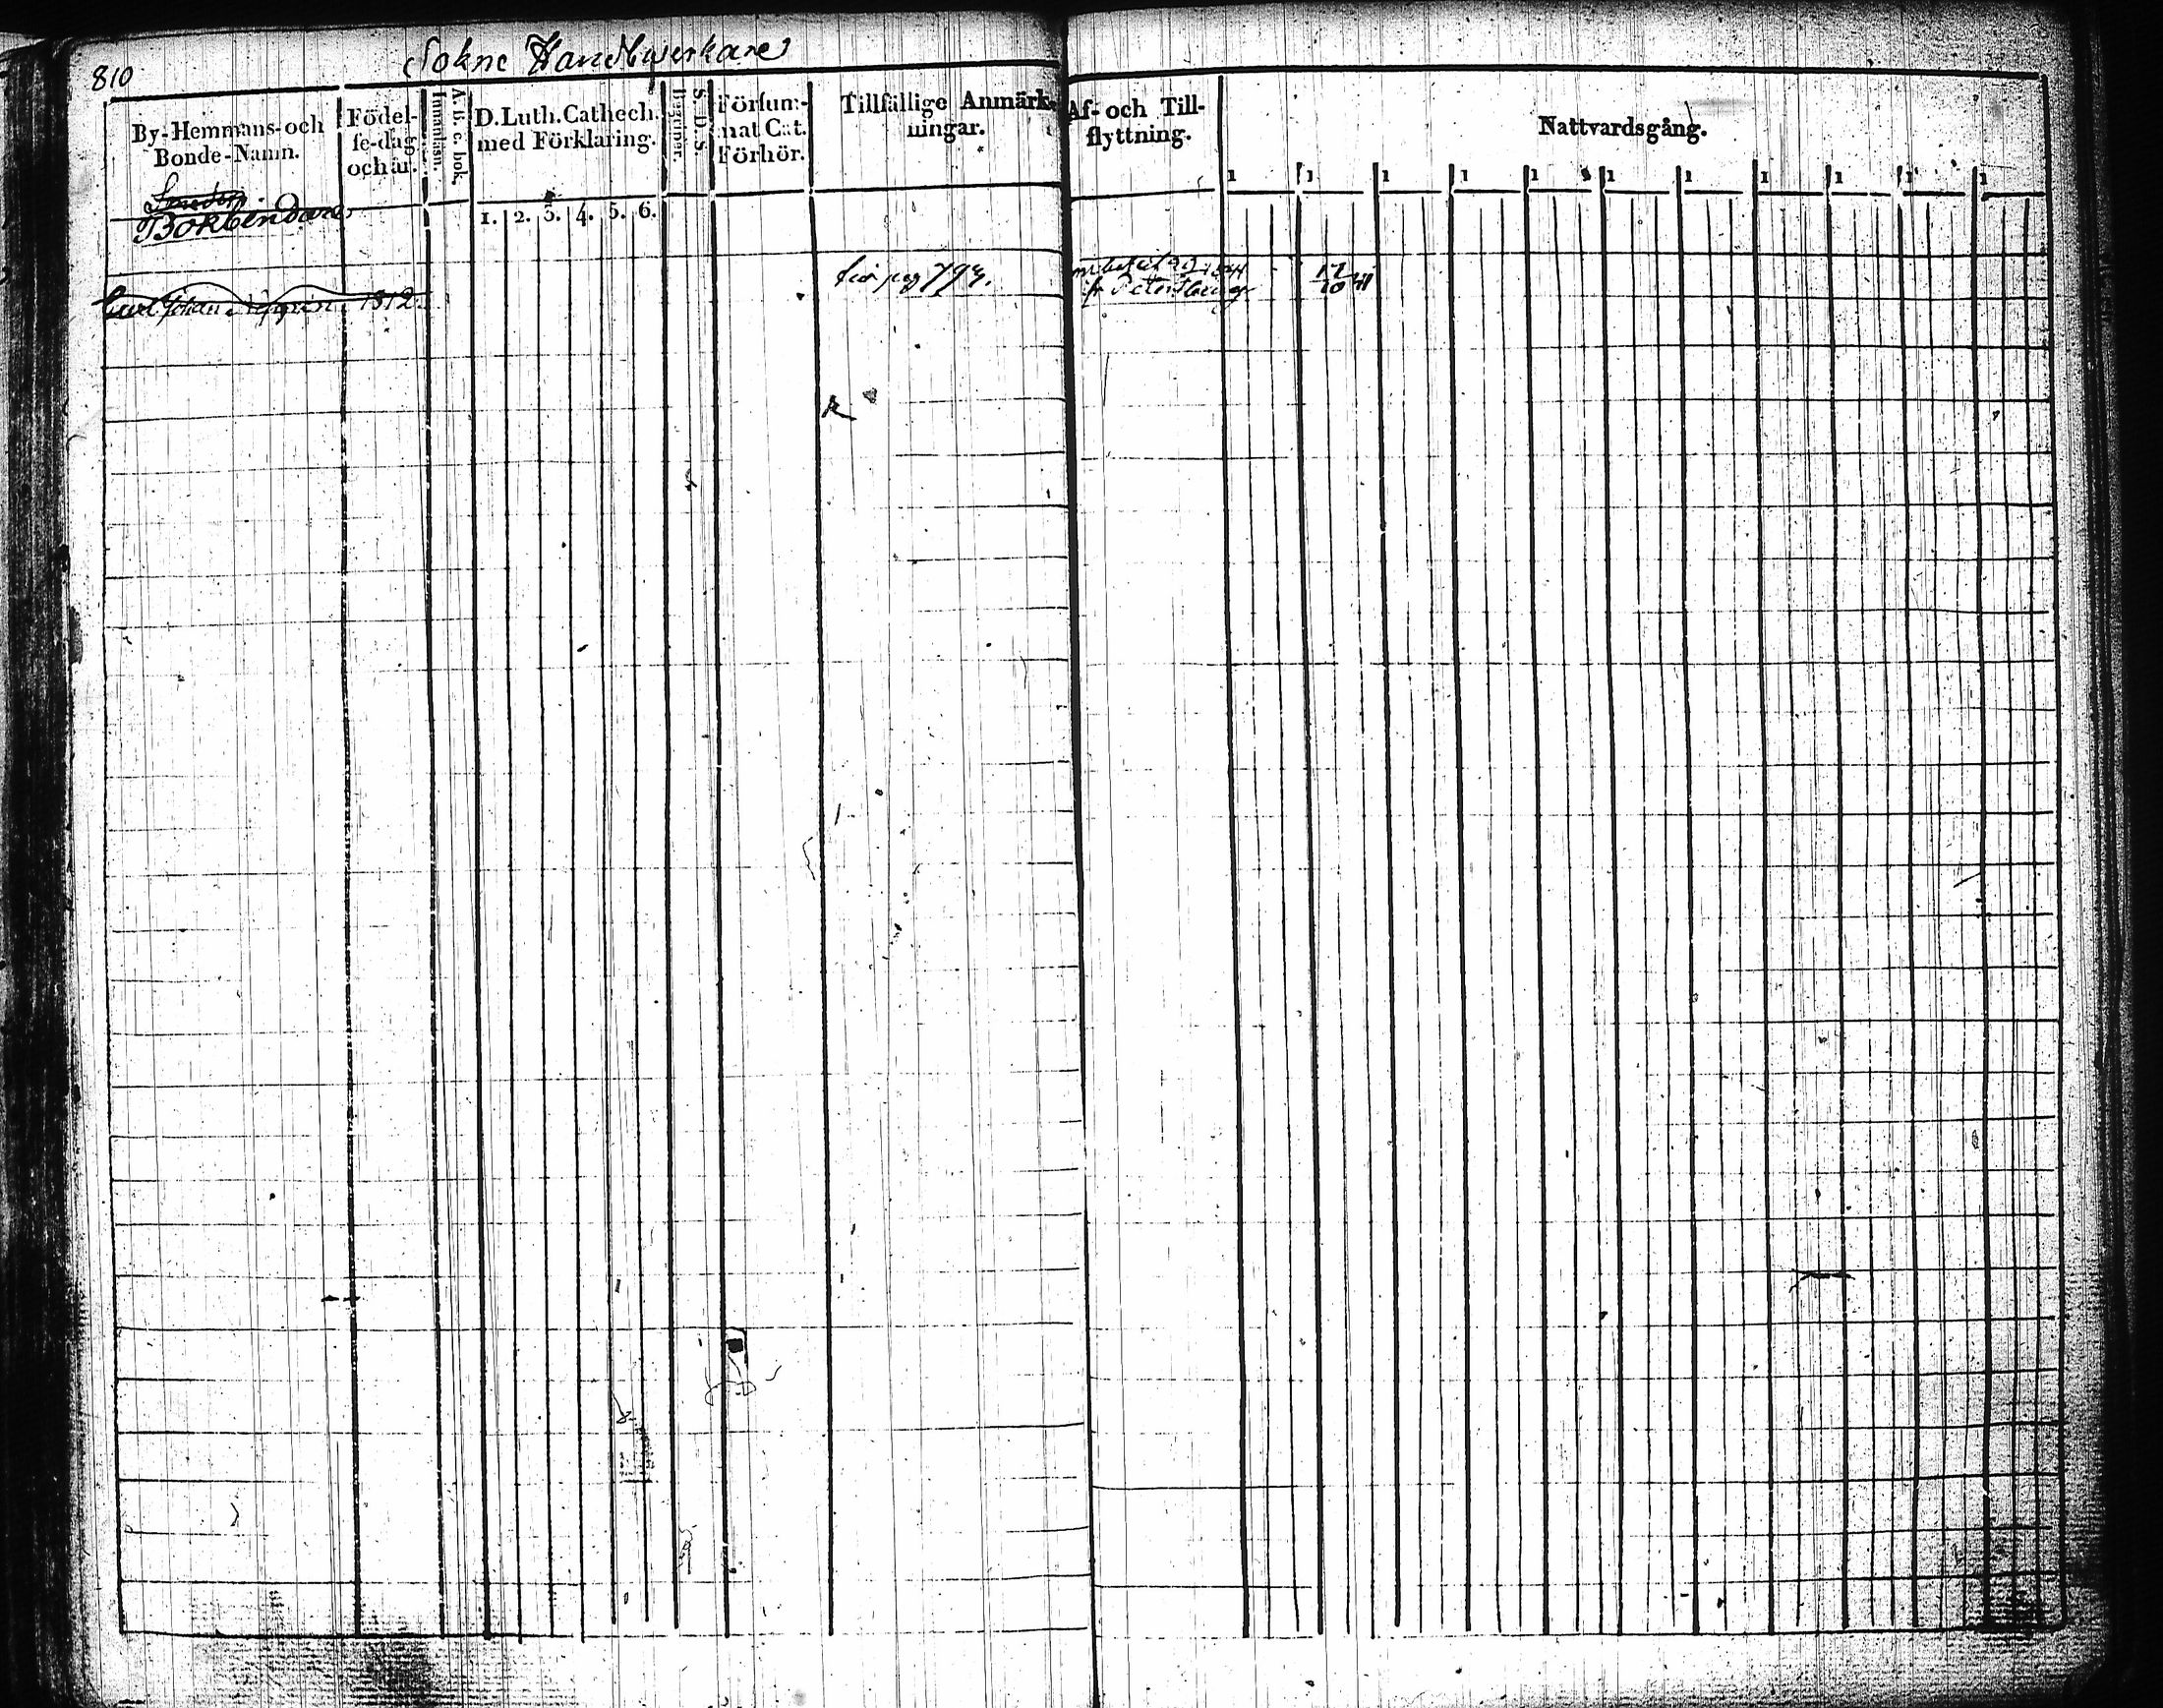 810
Sokne Handtwerkare
By-Hemmans-och
Bonde-Namn.
Födel-
se-dag
och år.
Innanläsn.
A. B. c. bok.
D. Luth. Cathech.
med Förklaring.
1. 2. 3. 4. 5. 6.
Begriper.
S. D. S.
Försum-
mat Cat.
Förhör.
Tillfällige Anmärk-
ningar.
Af- och Till-
flyttning.
Nattvardsgång.
1 1 1 1 1 1 1 1 1 1 1
Smeder
Bokbendare
Carl Johan 1812.
pag 793.
fr Petersburg
17/10 41